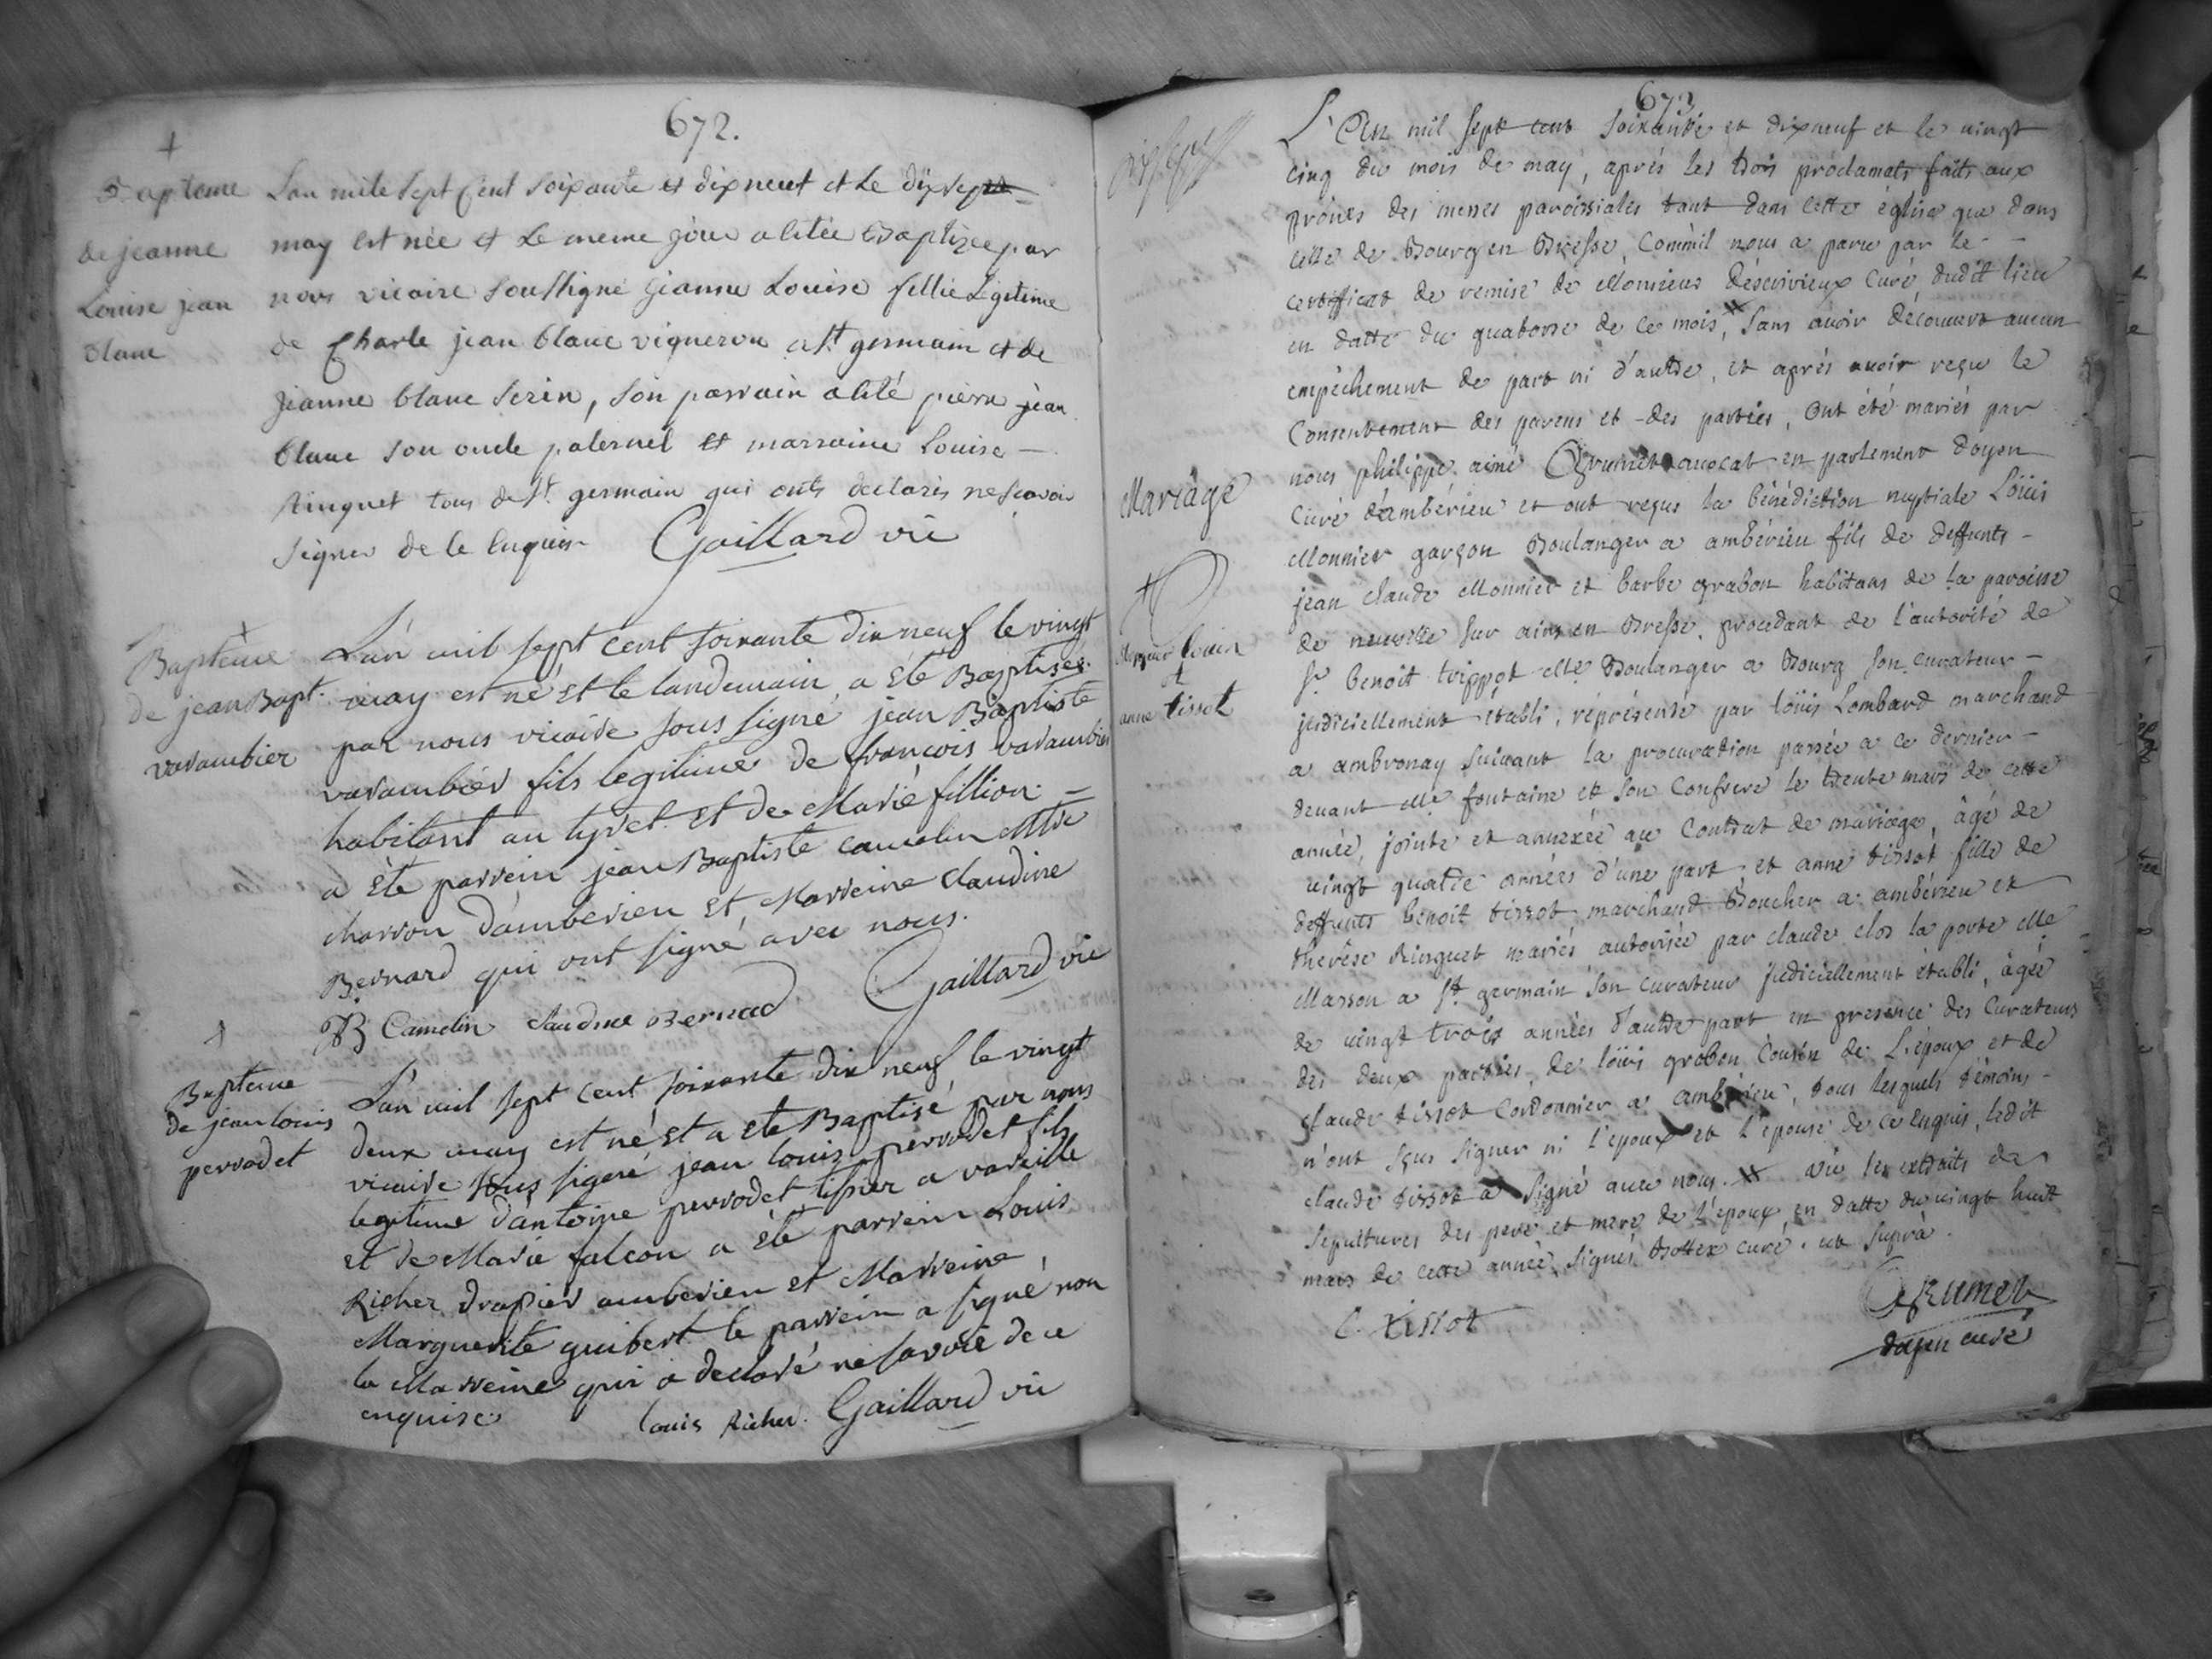 672.
Bapteme
de jeanne
Louise jean
blanc
L'an mile sept Cent soixante et dix neuf et Le dix sept
may est née et Le meme jour a litée Baptizée par
nous vicaire soussigné jeanne Louise fillie Legitime
de Charle jean blanc vigneron a St germain et de
jeanne blanc serin, son parrain a lité pierre jean
blanc son oncle paternel et marraine Louise
Ringuet tous de St germain qui onts declarés ne scavoir
signer de le enquis Gaillard vic
Bapteme
de jean Bapt.
varambier
L'an mil sept cent soixante dix neuf le vingt
may est né et le landemain a été Baptisé
par nous vicaire sous signé jean Baptiste
varambier fils legitime de francois varambier
habitant au tyret et de Marie fillion
a été parrein jean Baptiste camelin Mtre
charron d'amberieu et Marreine Claudine
Bernard qui ont signé avec nous.
JB Camelin Claudine Bernard Gaillard vic
Bapteme
de jean louis
perrodet
L'an mil sept cent soixante dix neuf le vingt
deux may est né et a eté Baptisé par nous
vicaire sous signé jean louis perrodet fils
legitime d'antoine perrodet tissier a vareille
et de Marie falcon a été parrein Louis
Richer drapier amberieu et Marreine
Marguerite guibert le parrein a signé non
la Marreine qui a declaré ne savoir de ce
enquise Louis Richer. Gaillard vic
673
Mariage
monnier louis
et
anne tissot
L'an mil sept cent soixante et dixneuf et le vingt
cinq du mois de may, aprés les trois proclamats faits aux
prônes des messes paroissiales tant dans cette église que dans
celle de Bourg en Bresse, Comm'il nous a paru par le
certifficat de remise de Monsieur Descrivieux Curé dudit lieu
en datte du quatorse de ce mois, # sans avoir découvert aucun
empêchement de part ni d'autre, et aprés avoir reçu le
Consentement des parens et des parties, ont été mariés par
nous philippe aimé Grumet avocat en parlement doyen
Curé d'ambérieu et ont reçus la bénédiction nuptiale Loüis
Monnier garçon Boulanger a ambérieu fils de deffunts
jean claude Monnier et barbe grabon habitans de la paroisse
de neuville sur ains en Bresse, procedant de l'autorité de
Sr benoit trippot Mtre Boulanger a Bourg son curateur
judiciellement etabli, réprésenté par loüis Lombard marchand
a ambronay suivant la procuration passée a ce dernier
devant Me fontaine et son Confrere le trente mars de cette
année, jointe et annexée au Contrat de mariage, âgé de
vingt quatre années d'une part, et anne tissot fille de
deffunts benoit tissot marchand Boucher a ambérieu et
thérèse Ringuet mariés autorisée par claude clos la porte Mtre
Masson a St germain son curateur judiciellement établi, âgée
de vingt trois années d'autre part en presence des Curateurs
des deux parties, de loüis grobon Cousin de L'epoux et de
claude tissot Cordonnier a ambérieu, tous lesquels témoins
n'ont sçus signer ni l'epoux et l'epouse de ce enquis, ledit
claude tissot a signé avec nous. # vu les extraits de
sepultures des pere et mere de l'epoux en datte du vingt huit
mars de cette année, signés Bottex curé. ut supra.
C. tissot
Grumet
doyen curé